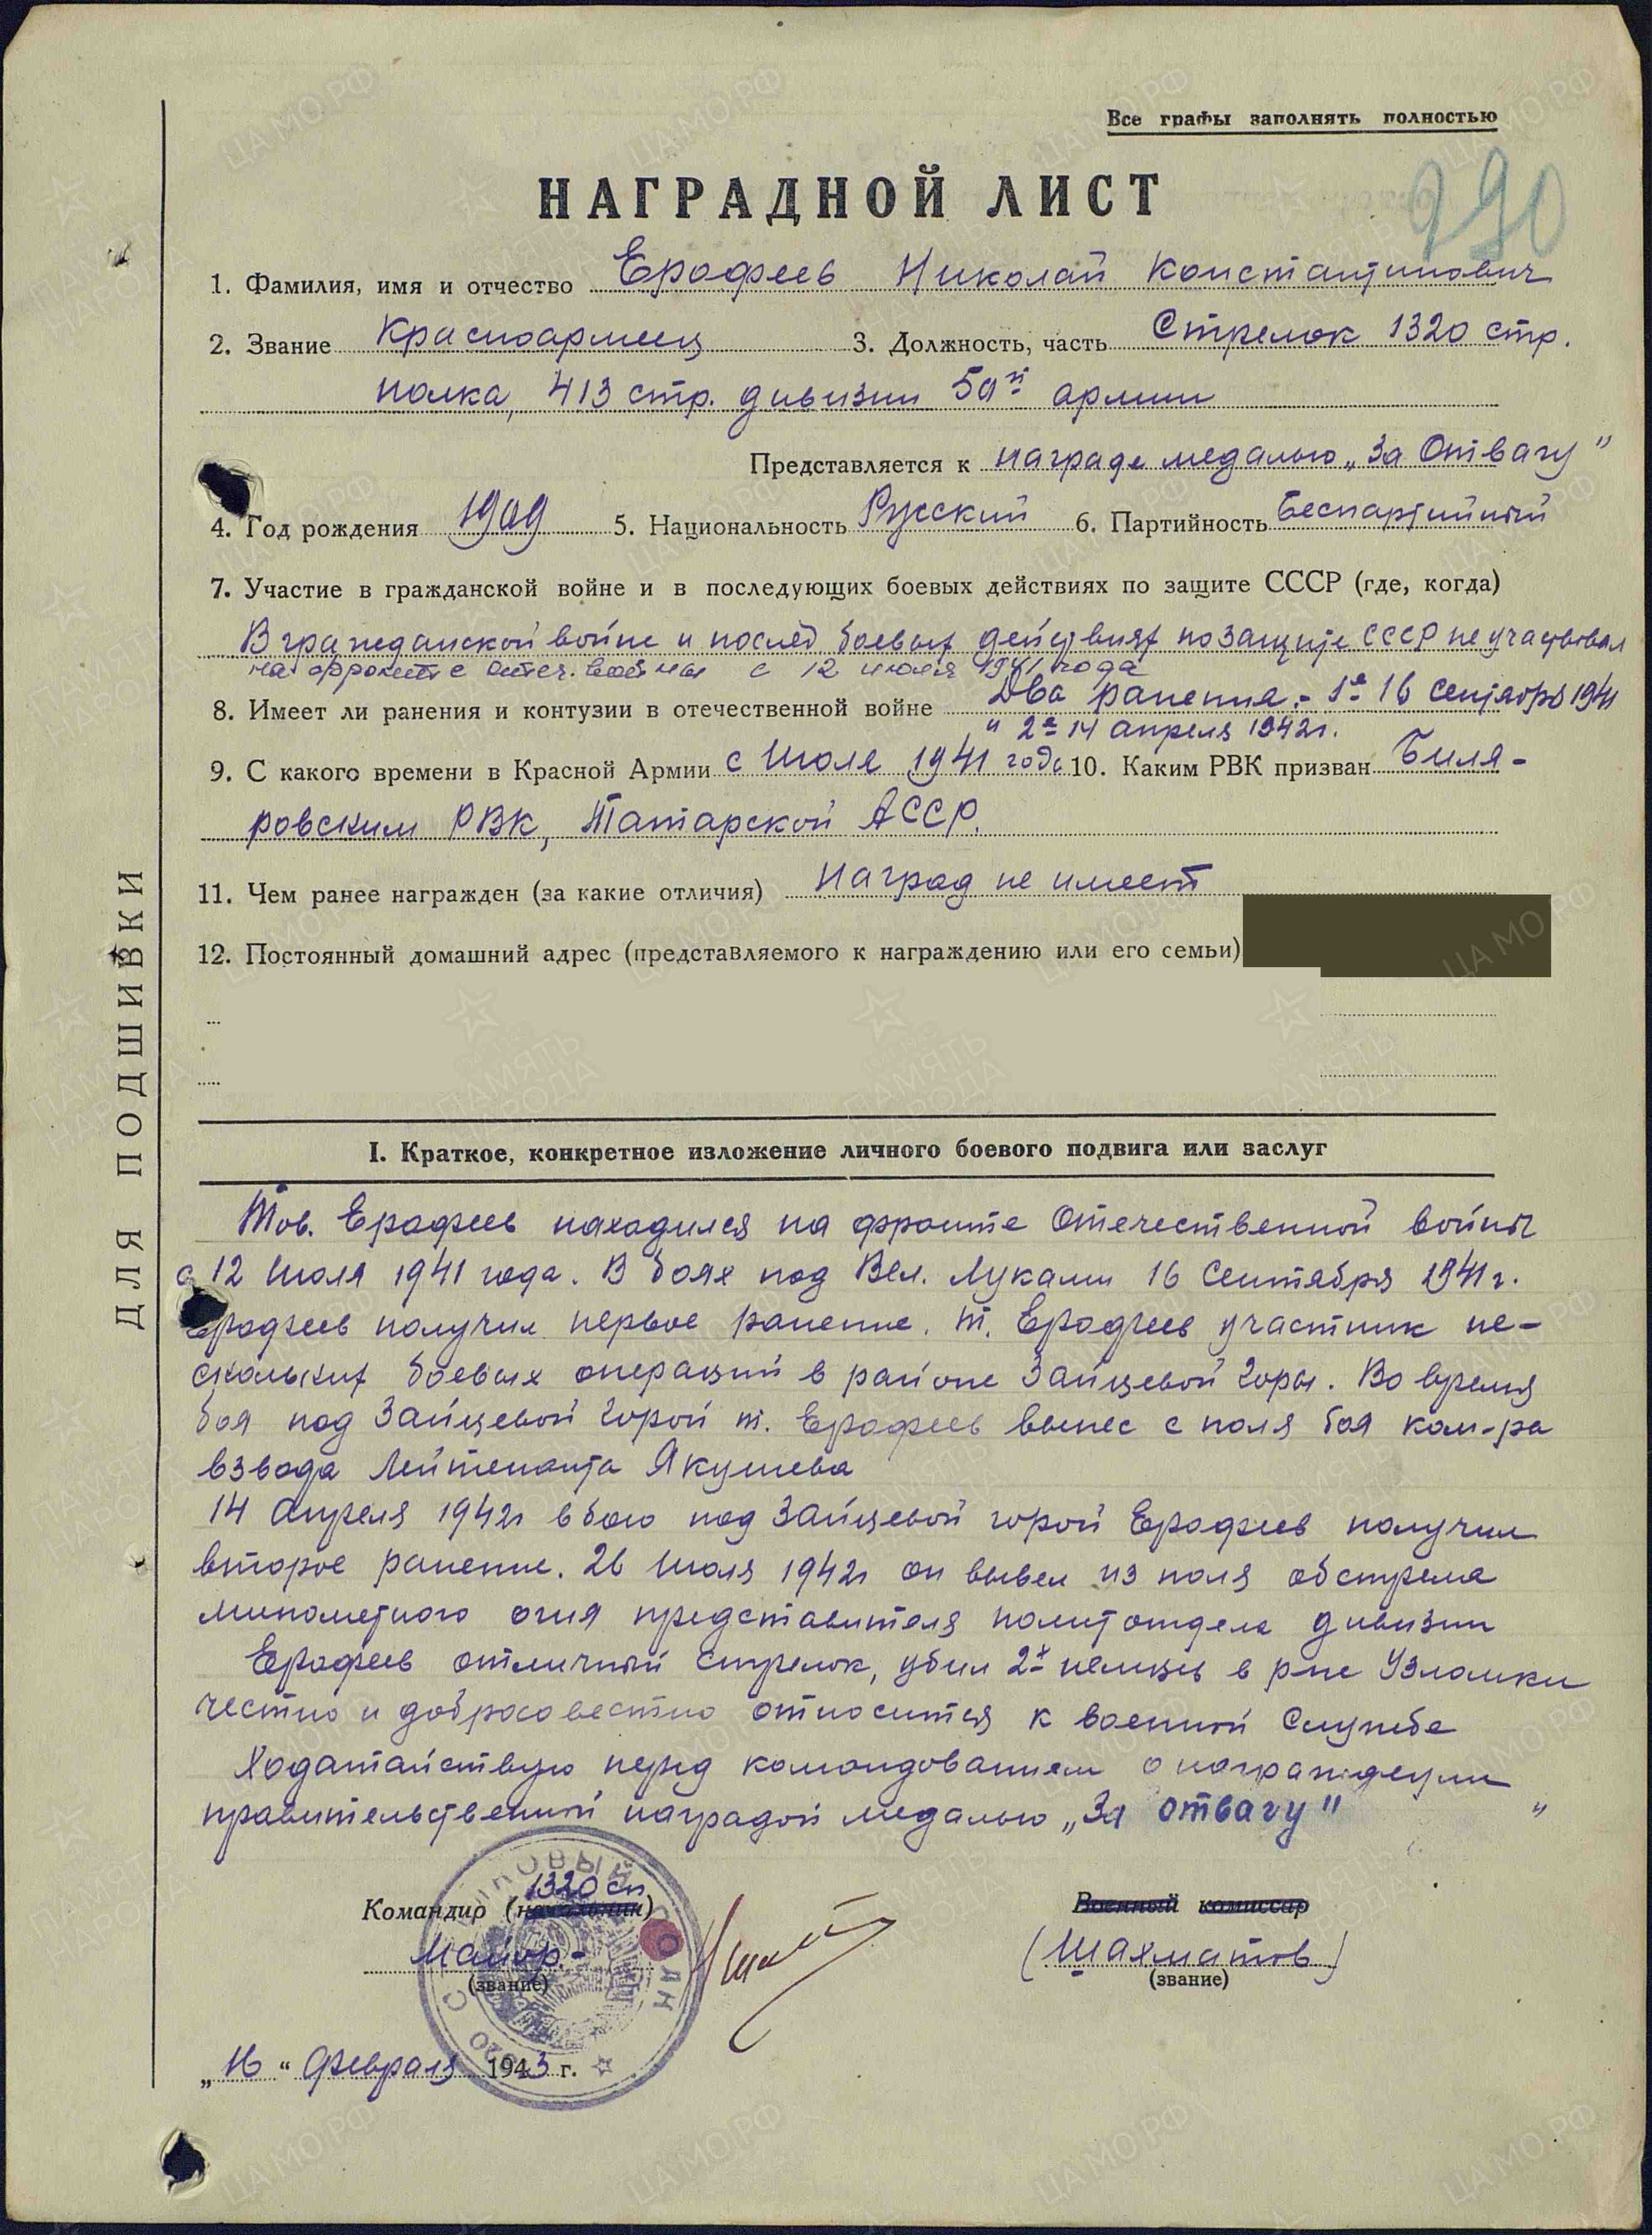 Все графы заполнять полностью
290
НАГРАДНОЙ ЛИСТ
1. Фамилия, имя и отчество Ерофеев Николай Константинович
2. Звание Красноармеец 3. Должность, часть Стрелок 1320 стр.
полка, 413 стр. дивизии 50й армии
Представляется к награде медалью „За Отвагу"
4. Год рождения 1909 5. Национальность Русский 6. Партийность Беспартийный
7. Участие в гражданской войне и в последующих боевых действиях по защите СССР (где, когда)
В гражданской войне и послед боевых действиях по защите СССР не участвовал
на фронте отеч. войны с 12 июля 1941 года
8. Имеет ли ранения и контузии в отечественной войне Два ранения. - 1е 16 сентября 1941
и 2е 14 апреля 1942г.
9. С какого времени в Красной Армии с Июля 1941 года 10. Каким РВК призван Биля-
ровским РВК, Татарской АССР.
11. Чем ранее награжден (за какие отличия) Наград не имеет
12. Постоянный домашний адрес (представляемого к награждению или его семьи)
ДЛЯ ПОДШИВКИ
I. Краткое, конкретное изложение личного боевого подвига или заслуг
Тов. Ерофеев находился на фронте Отечественной войны
с 12 Июля 1941 года. В боях под Вел. Луками 16 Сентября 1941 г.
Ерофеев получил первое ранение. т. Ерофеев участник не-
скольких боевых операций в районе Зайцевой Горы. Во время
боя под Зайцевой Горой т. Ерофеев вынес с поля боя ком-ра
взвода Лейтенанта Якушева
14 Апреля 1942г в бою под Зайцевой горой Ерофеев получил
второе ранение. 26 Июля 1942г он вывел из поля обстрела
минометного огня представителя политотдела дивизии
Ерофеев отличный стрелок, убил 2х немцев в р-не Узломки
честно и добросовестно относится к военной Службе
Ходатайствую перед командованием о награждении
правительственной наградой медалью „За отвагу" "
Командир (начальник) 1320 сп
Военный комиссар
Майор.- (Шахматов)
(звание) (звание)
„16" Февраля 1943 г.
ЦА МО.РФ
ПАМЯТЬ НАРОДА